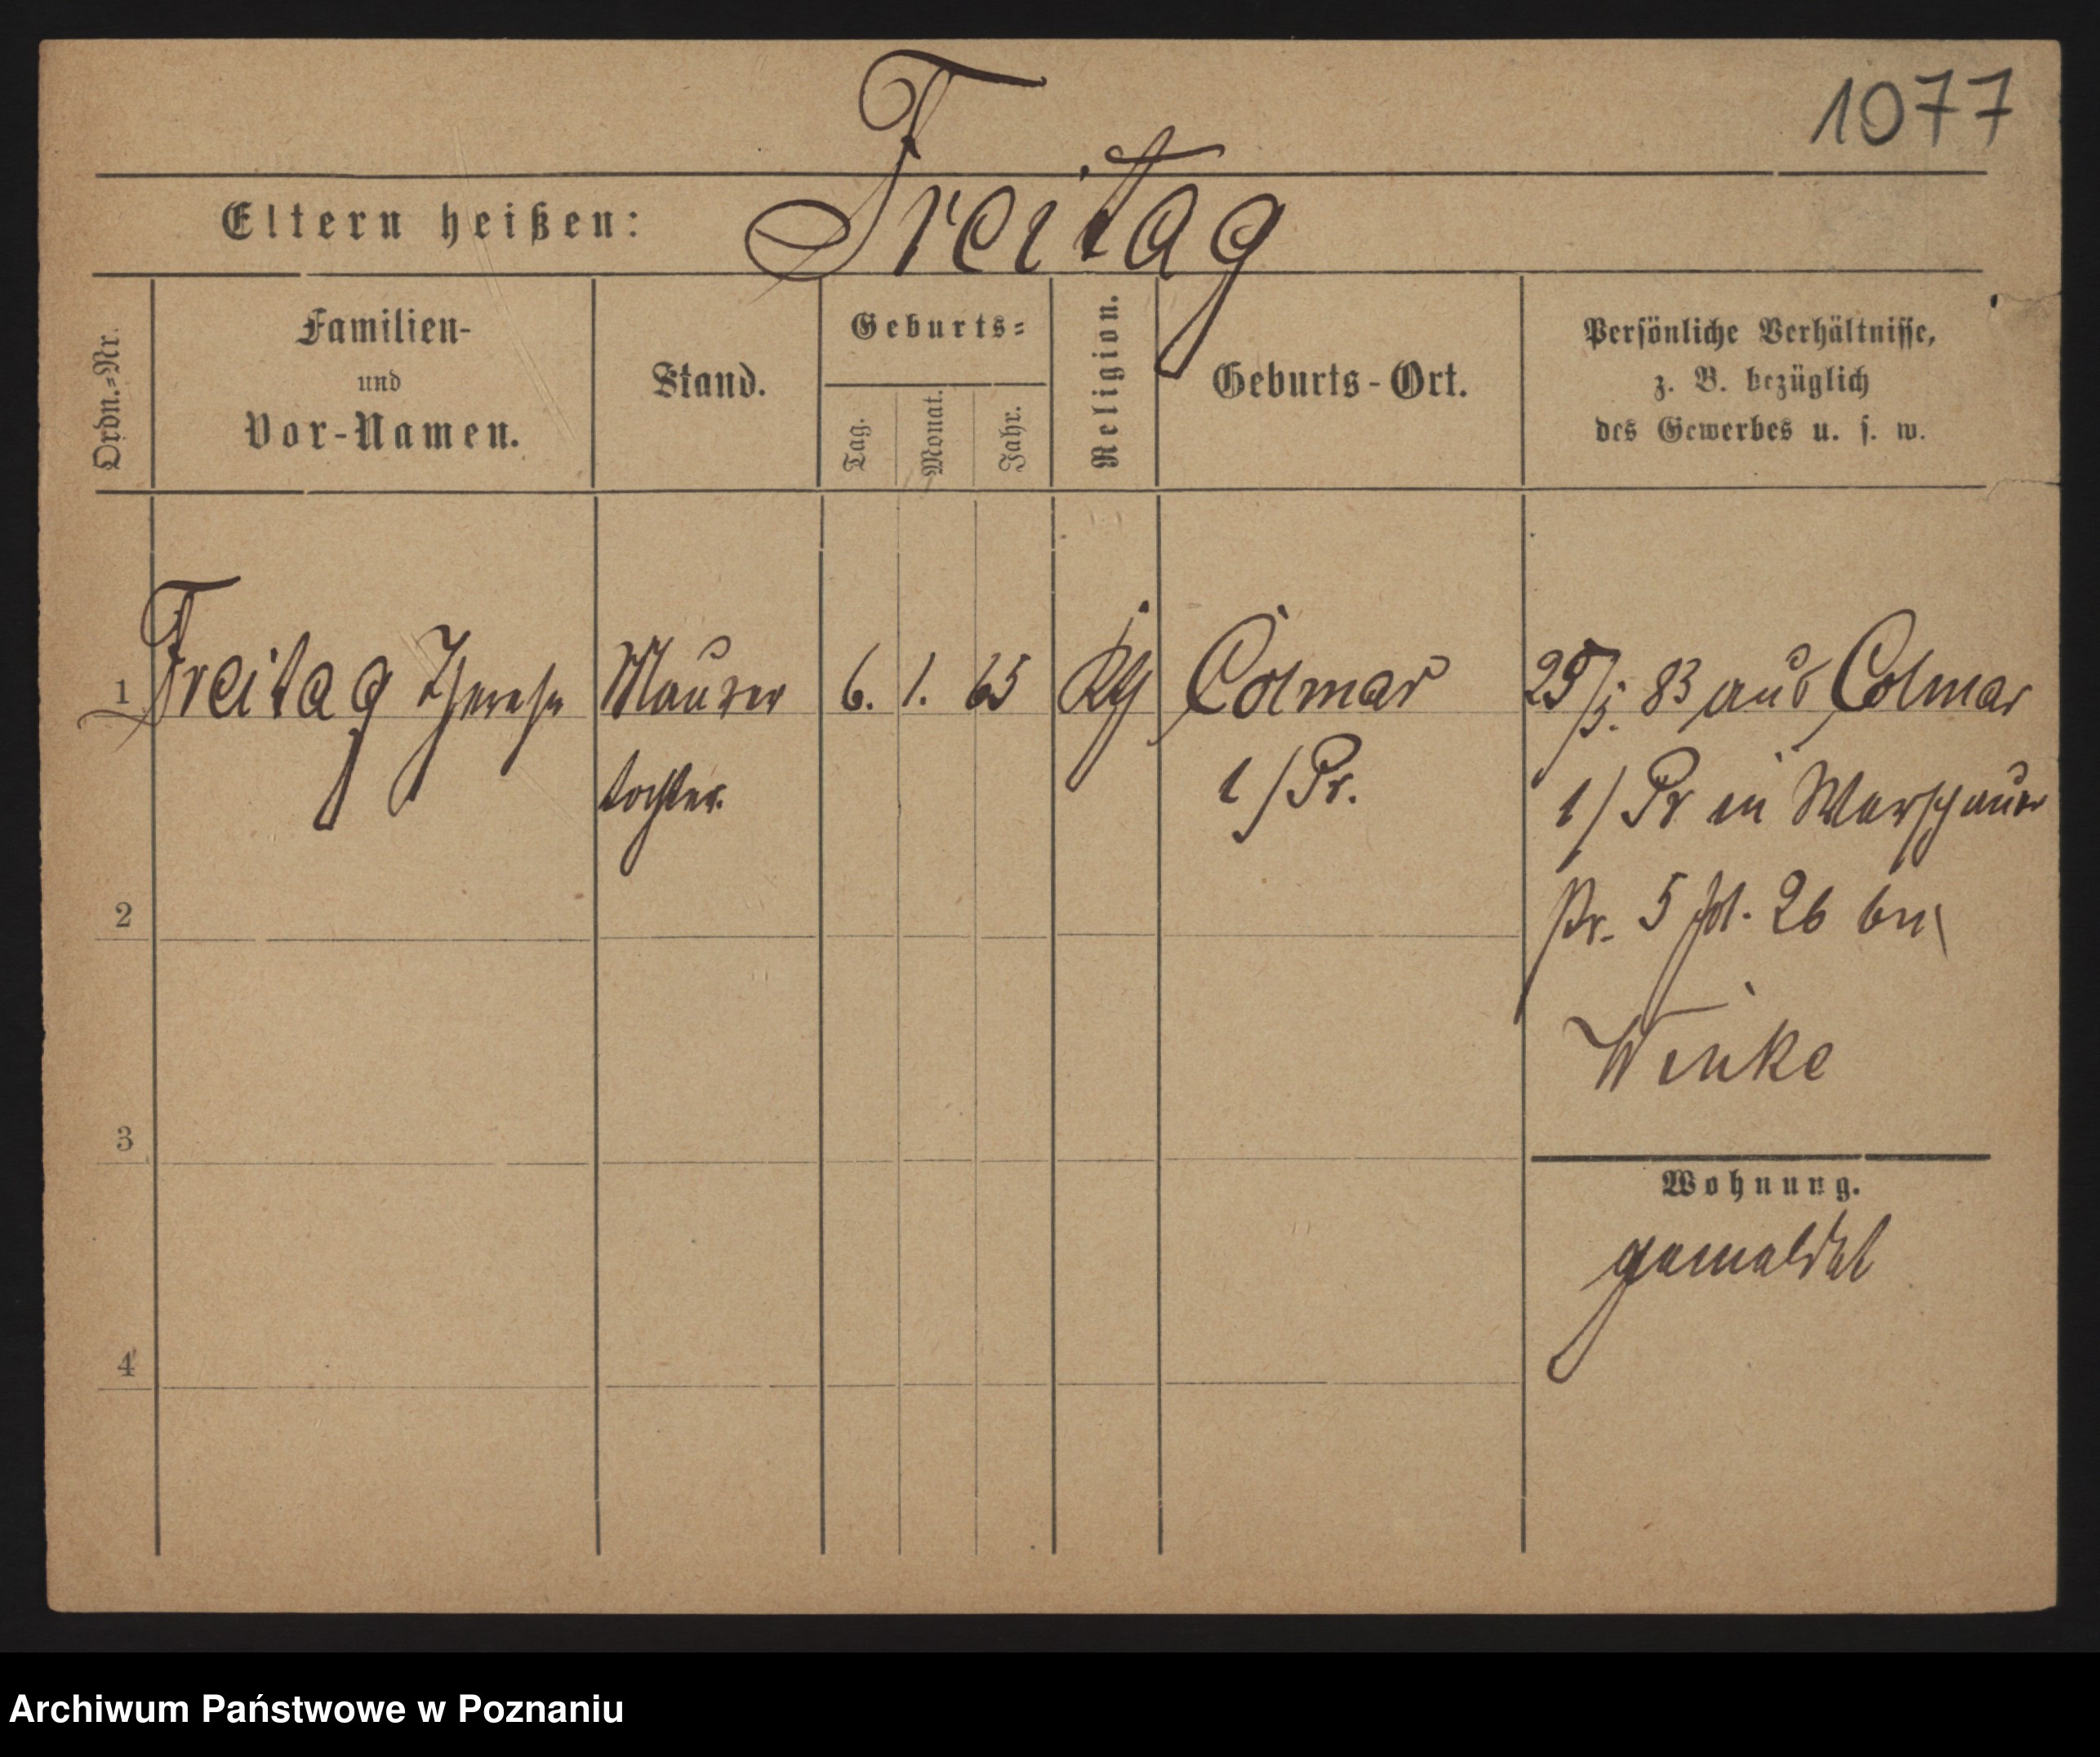 1077
Freitag
Eltern heißen:
Ordn.=Nr.
Familien-
und
Vor-Namen.
Stand.
Geburts=
Tag.
Monat.
Jahr.
Religion.
Geburts-Ort.
Persönliche Verhältnisse,
z. B. bezüglich
des Gewerbes u. s. w.
1 Freitag Therese Maurer 6. 1. 65 Colmar 83 aus Colmar
tochter. i/Pr. i/Pr in Warschauer
2
5 26 bei
3
Wohnung.
gemeldet
4
Archiwum Państwowe w Poznaniu